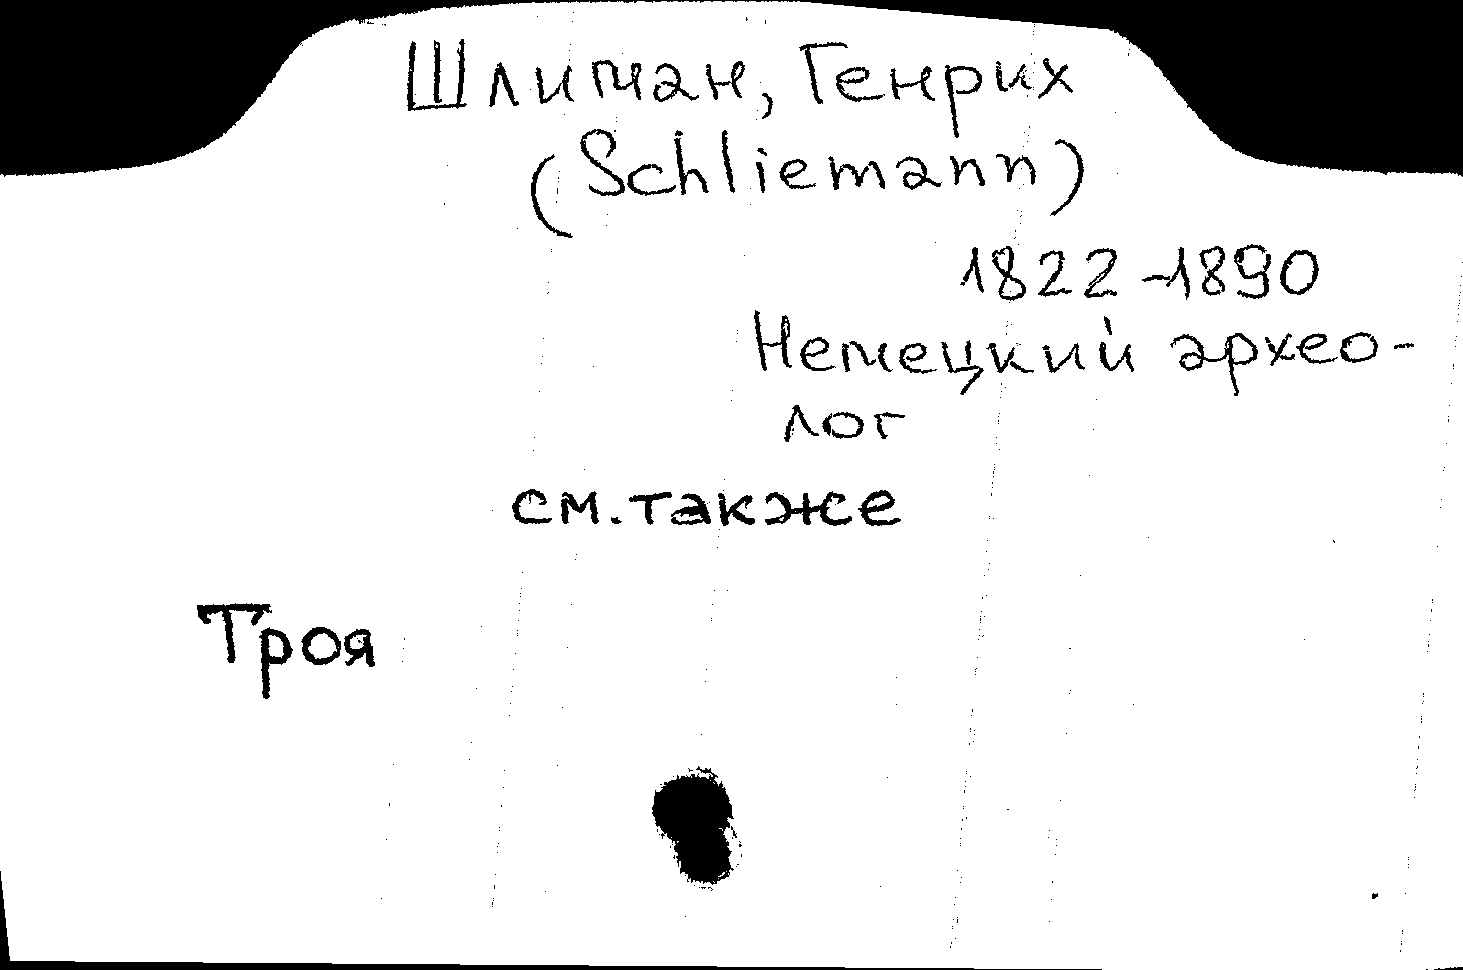 Шлиман, Генрих
(Schliemann)
1822-1890
Немецкий архео-
лог
см. также
Троя